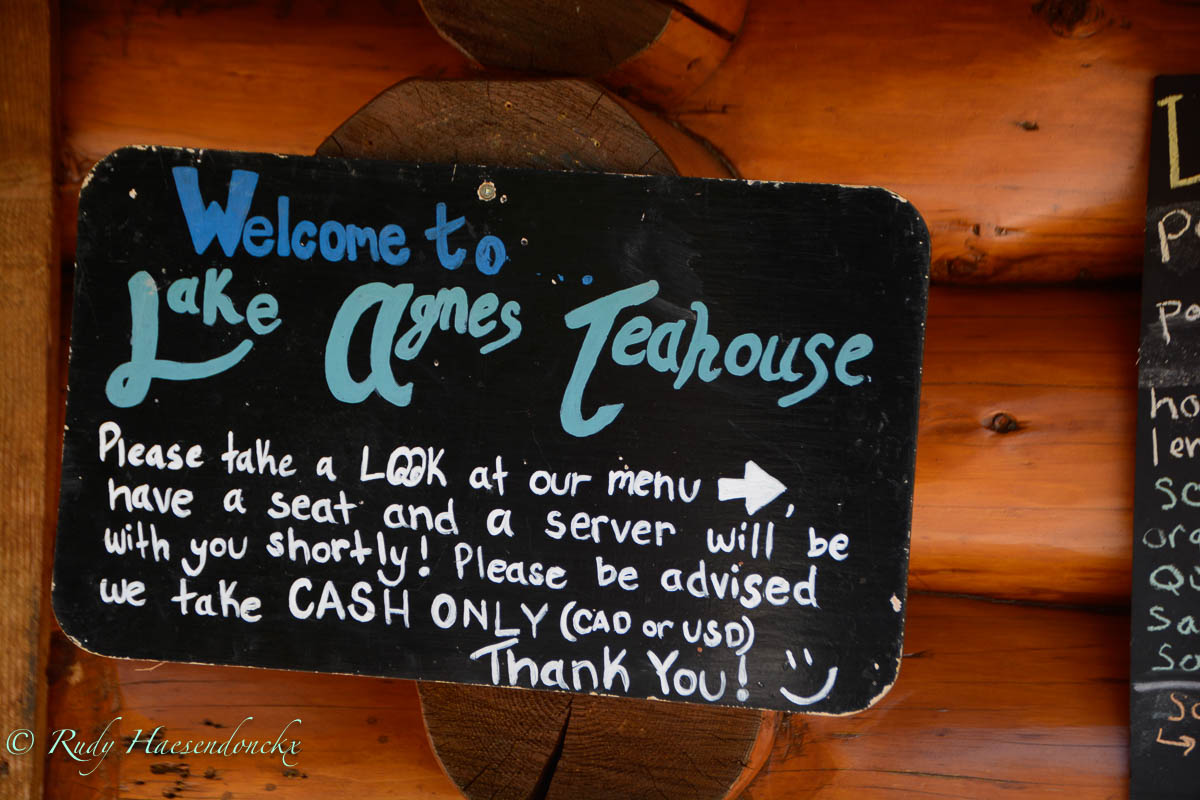 Welcome to
Lake Agnes Teahouse
Please take a LOOK at our menu ➡,
have a seat and a server will be
with you shortly! Please be advised
we take CASH ONLY (CAD or USD)
Thank You! :)
© Rudy Haesendonckx